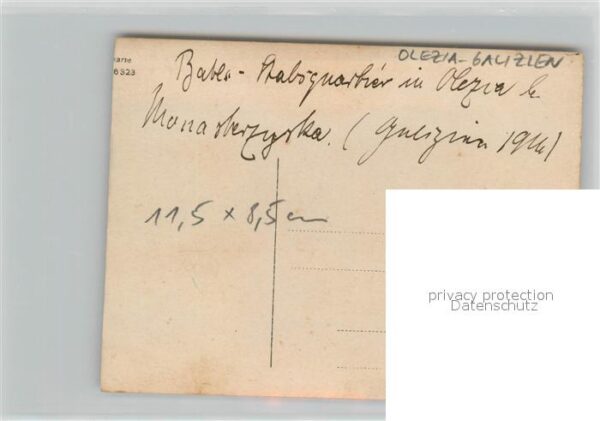 OLEZIA-GALIZIEN
karte
6323
Batls-Stabsquartier in Olezia b.
Monasterzyska. (Galizien 1916)
11,5 x 8,5 cm
privacy protection
Datenschutz